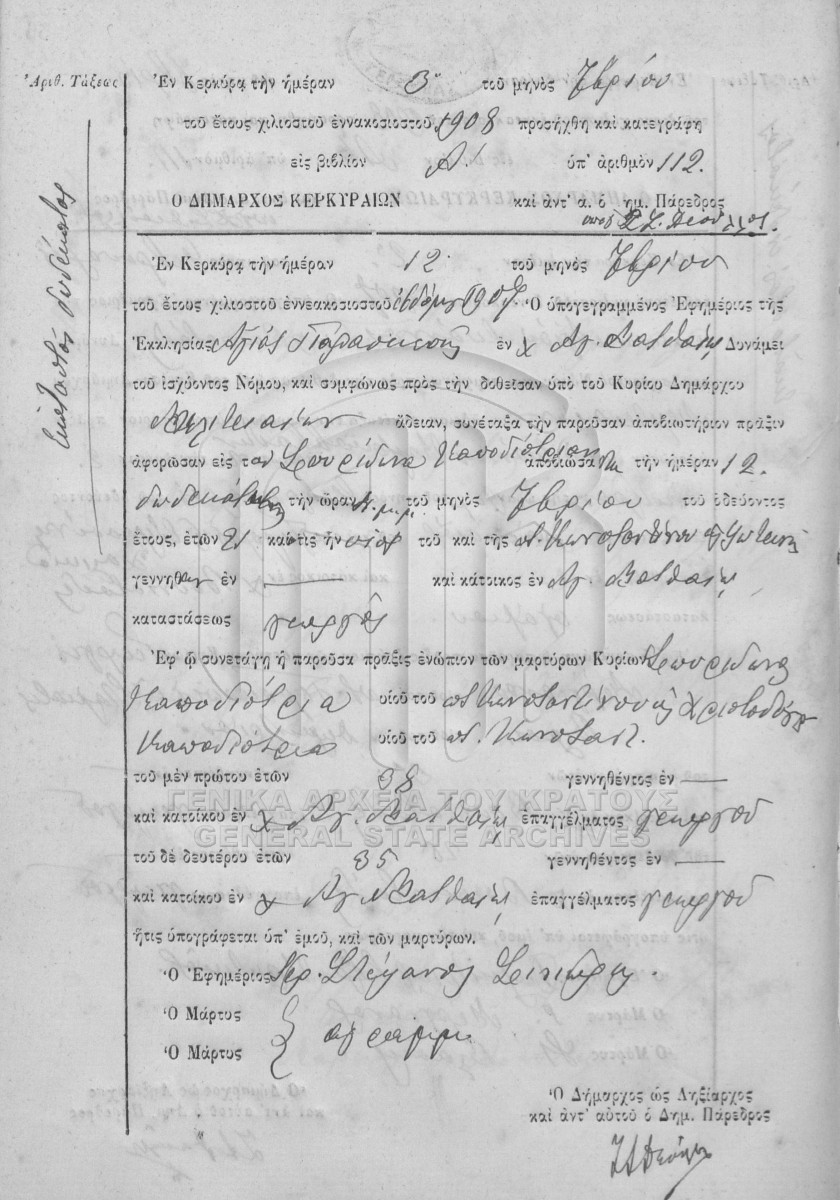 Ἀριθ. Τάξεως
Ἑκατοστὸς δωδέκατος
Ἐν Κερκύρᾳ τὴν ἡμέραν 3ην τοῦ μηνὸς
τοῦ ἔτους χιλιοστοῦ ἐννακοσιοστοῦ 1908 προσήχθη καὶ κατεγράφη
εἰς βιβλίον Α' ὑπ' ἀριθμὸν 112.
Ὁ ΔΗΜΑΡΧΟΣ ΚΕΡΚΥΡΑΙΩΝ καὶ ἀντ' α. ὁ δημ. Πάρεδρος
Ἐν Κερκύρᾳ τὴν ἡμέραν 12 τοῦ μηνὸς
τοῦ ἔτους χιλιοστοῦ ἐννεακοσιοστοῦ Ὁ ὑπογεγραμμένος Ἐφημέριος τῆς
Ἐκκλησίας Ἁγίας Παρασκευῆς ἐν χ Ἁγ. Ματθαίῳ Δυνάμει
τοῦ ἰσχύοντος Νόμου, καὶ συμφώνως πρὸς τὴν δοθεῖσαν ὑπὸ τοῦ Κυρίου Δημάρχου
Μελιτειαίων ἄδειαν, συνέταξα τὴν παροῦσαν ἀποβιωτήριον πρᾶξιν
ἀφορῶσαν εἰς τὸν Σπυρίδωνα Καποδίστριαν ἀποβιώσαντα τὴν ἡμέραν 12.
δωδεκάτην τὴν ὥραν μ.μ. τοῦ μηνὸς τοῦ ὁδεύοντος
ἔτους, ἐτῶν 21 καὶ ὅστις ἦν υἱὸς τοῦ καὶ τῆς ποτ. Κωνσταντίνου
γεννηθεὶς ἐν — καὶ κάτοικος ἐν Ἁγ. Ματθαίῳ
καταστάσεως γεωργὸς
Ἐφ' ᾧ συνετάγη ἡ παροῦσα πρᾶξις ἐνώπιον τῶν μαρτύρων Κυρίων Σπυρίδωνα
Καποδίστρια υἱοῦ τοῦ ποτ Κωνσταντίνου
Καποδίστρια υἱοῦ τοῦ ποτ. Κωνσταντ.
τοῦ μὲν πρώτου ἐτῶν 38 γεννηθέντος ἐν —
ΓΕΝΙΚΑ ΑΡΧΕΙΑ ΤΟΥ ΚΡΑΤΟΥΣ
καὶ κατοίκου ἐν χ Ἁγ. Ματθαίῳ ἐπαγγέλματος γεωργοῦ
GENERAL STATE ARCHIVES
τοῦ δὲ δευτέρου ἐτῶν 35 γεννηθέντος ἐν —
καὶ κατοίκου ἐν χ Ἁγ. Ματθαίῳ ἐπαγγέλματος γεωργοῦ
ἥτις ὑπογράφεται ὑπ' ἐμοῦ, καὶ τῶν μαρτύρων.
Ὁ Ἐφημέριος Ἱερ. Στέφανος
Ὁ Μάρτυς
ἀγράμμ.
Ὁ Μάρτυς
Ὁ Δήμαρχος ὡς Ληξίαρχος
καὶ ἀντ' αὐτοῦ ὁ Δημ. Πάρεδρος